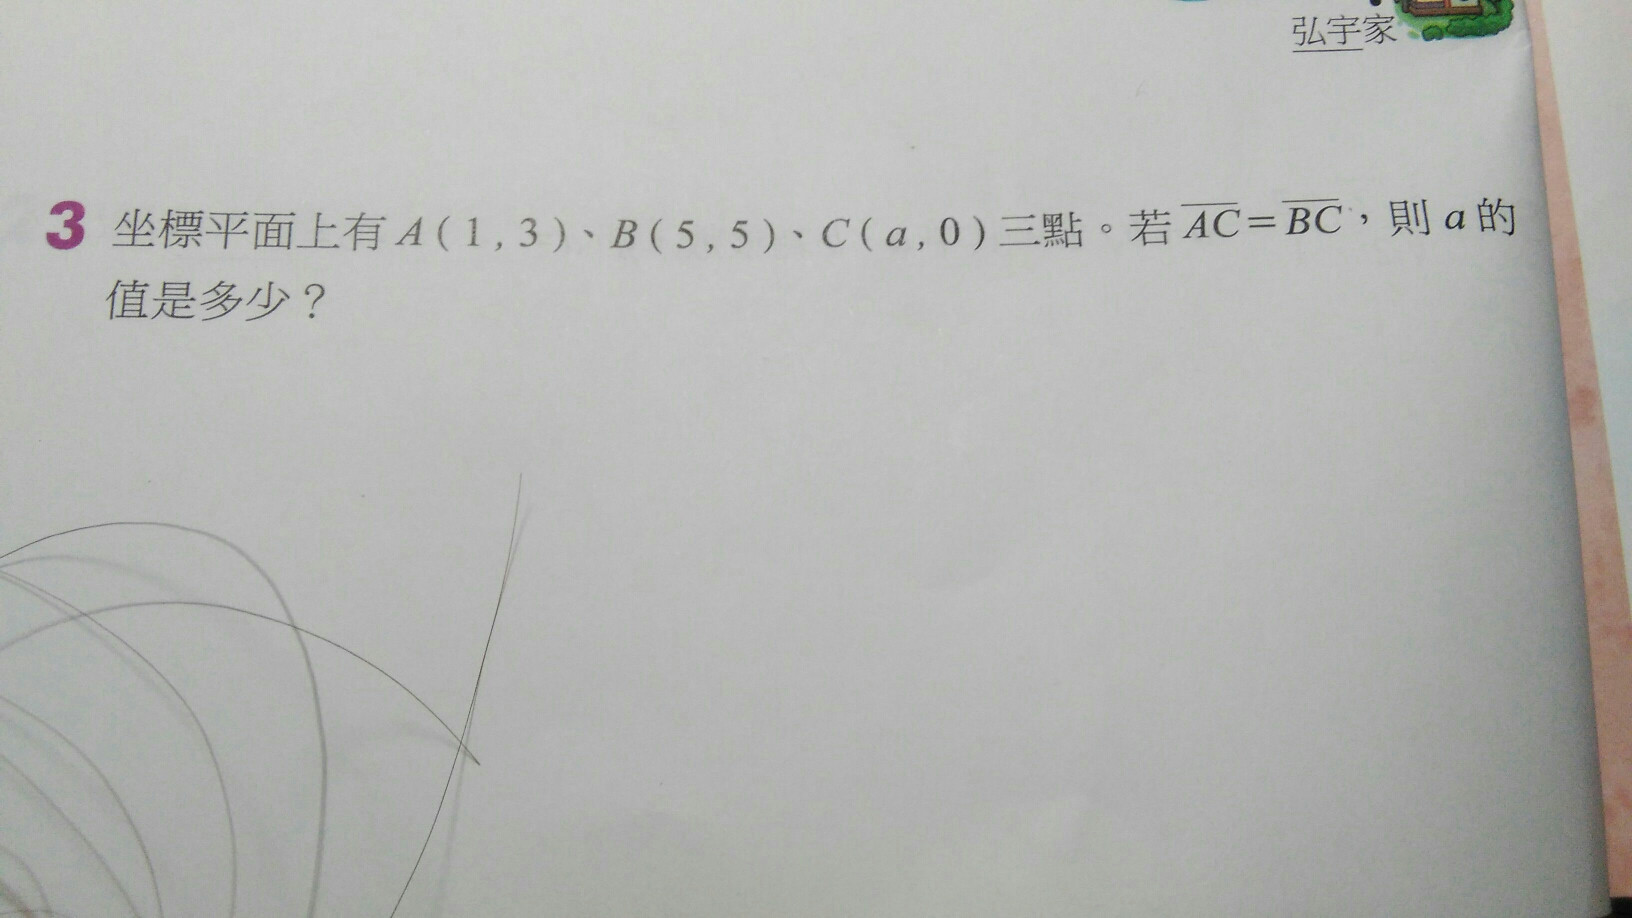 弘宇家
3 坐標平面上有 A ( 1 , 3 )、B ( 5 , 5 )、C ( a , 0 ) 三點。若 \overline{AC}=\overline{BC}，則 a 的
值是多少？